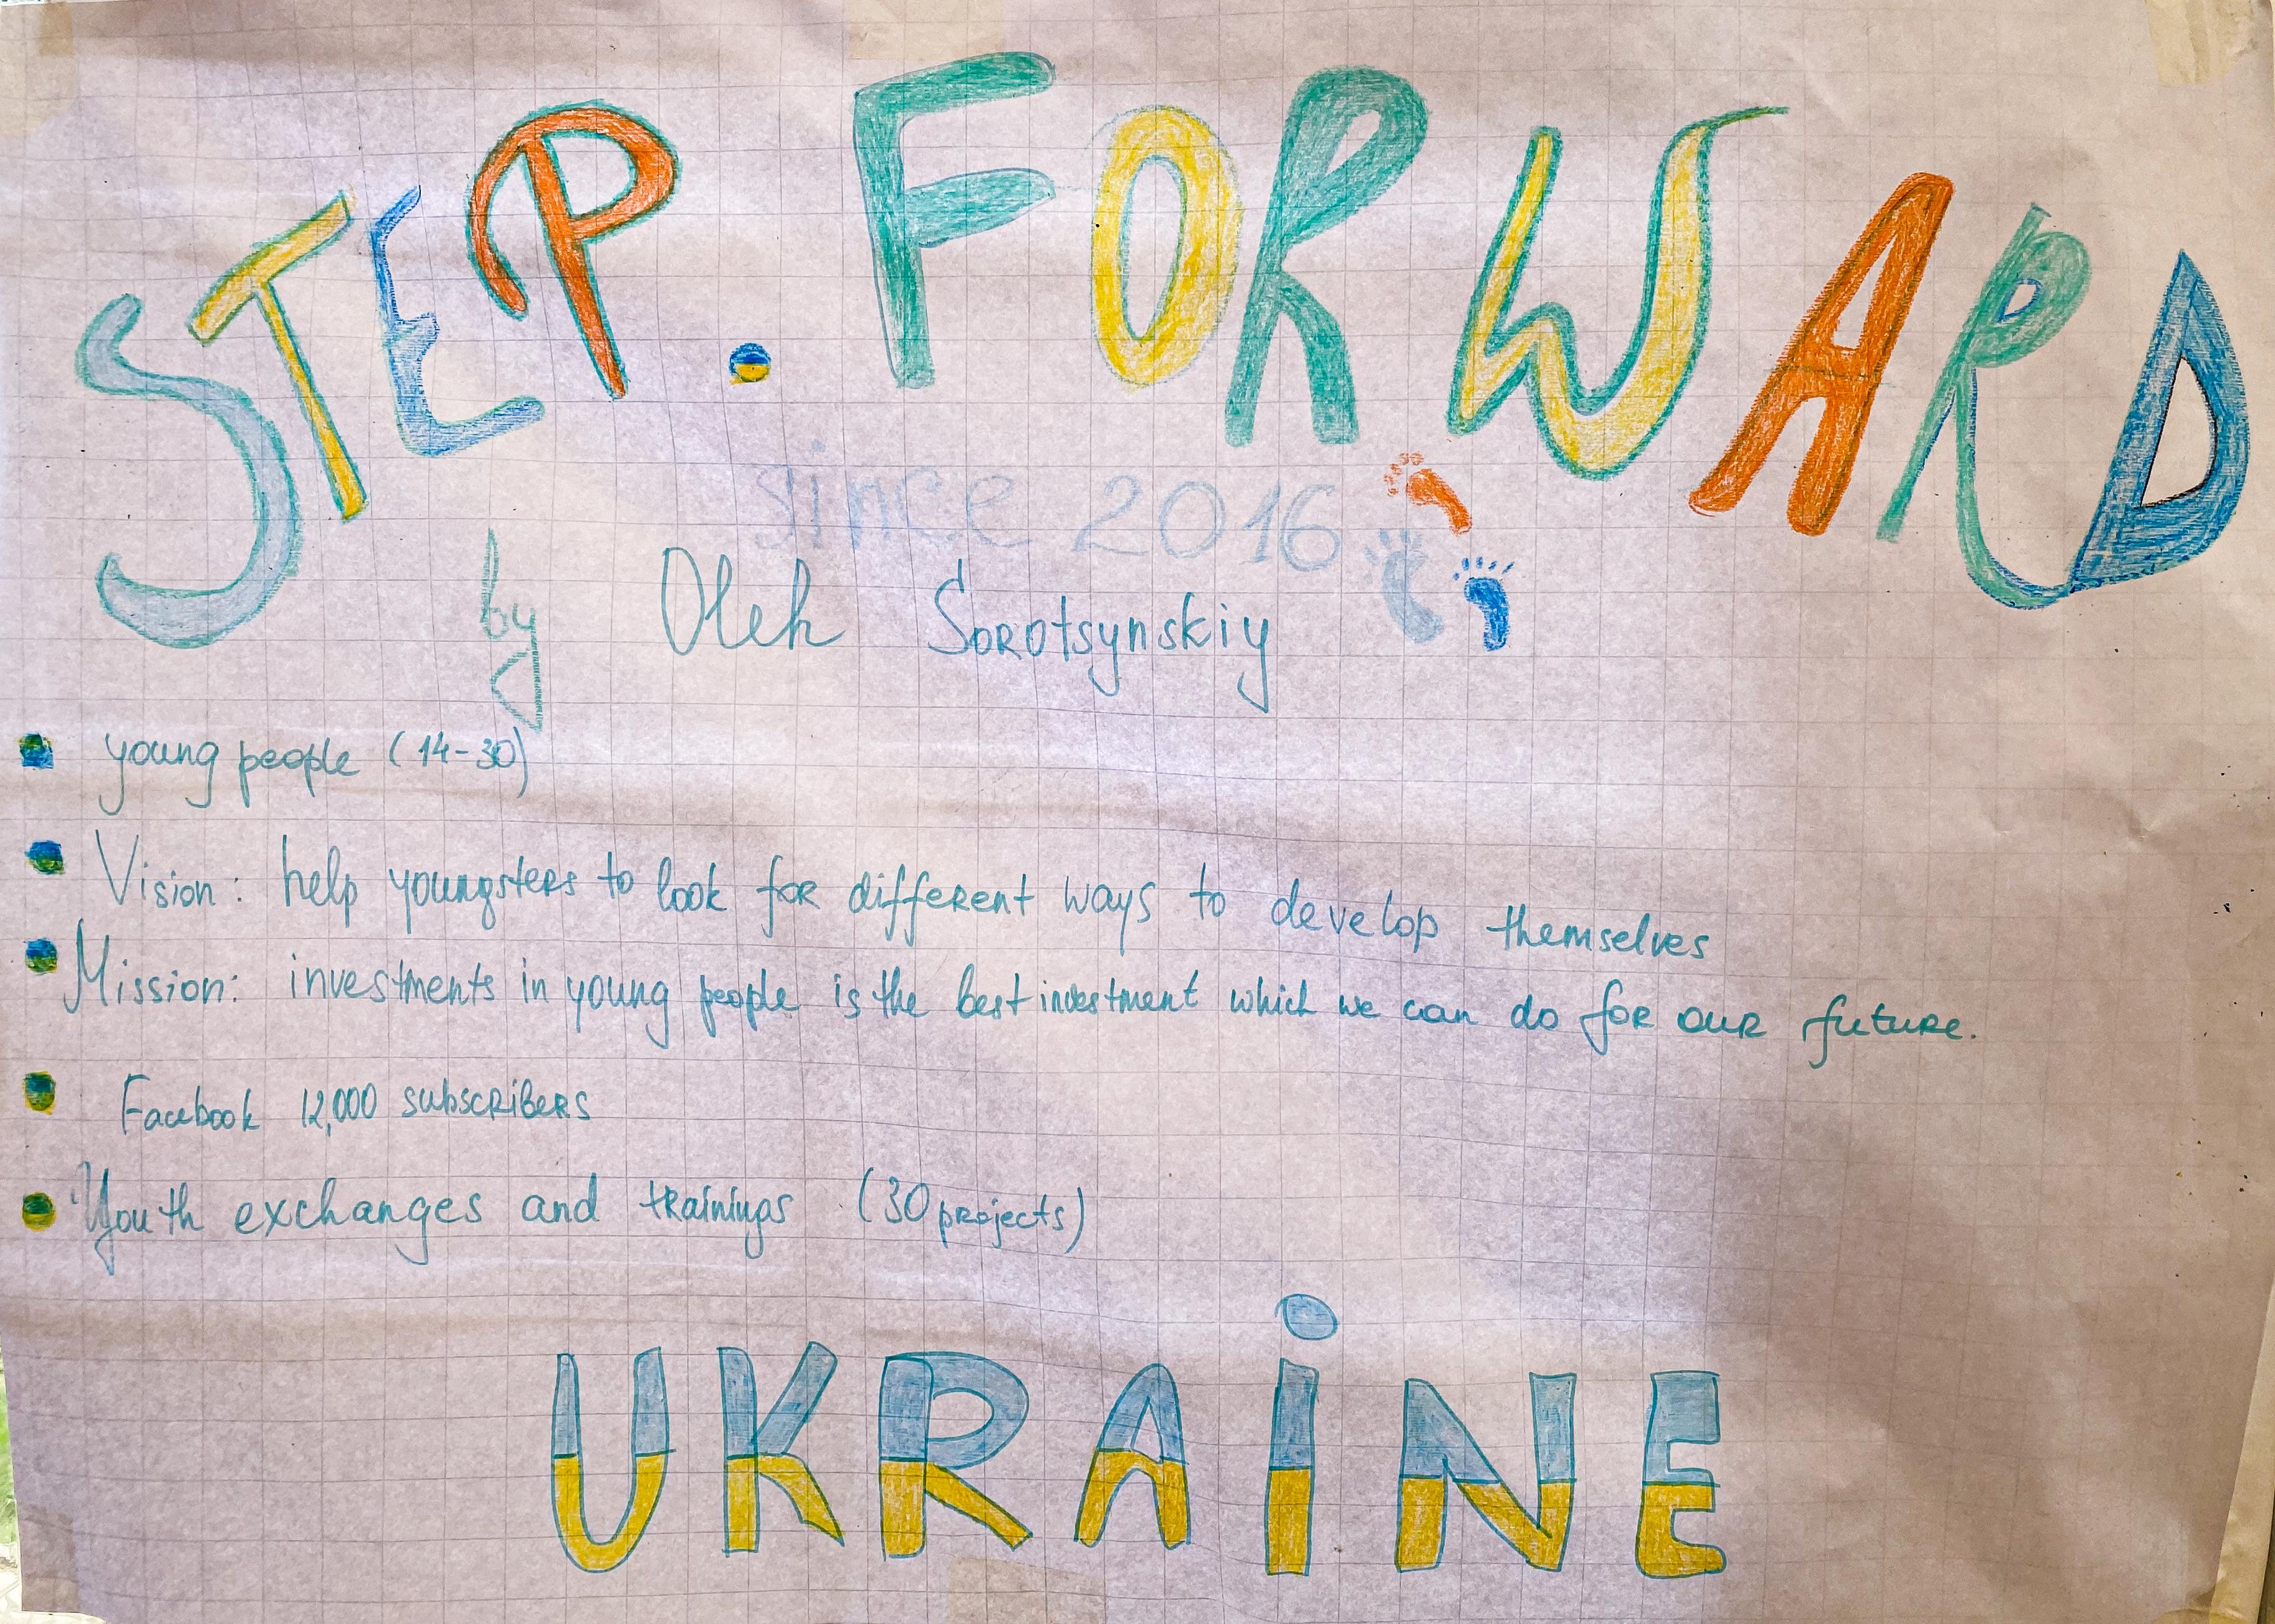 STEP. FORWARD
since 2016
by Oleh Sorotsynskiy
young people (14-30)
Vision: help youngsters to look for different ways to develop themselves
Mission: investments in young people is the best investment which we can do for our future.
Facebook 12,000 subscribers
Youth exchanges and trainings (30 projects)
UKRAiNE